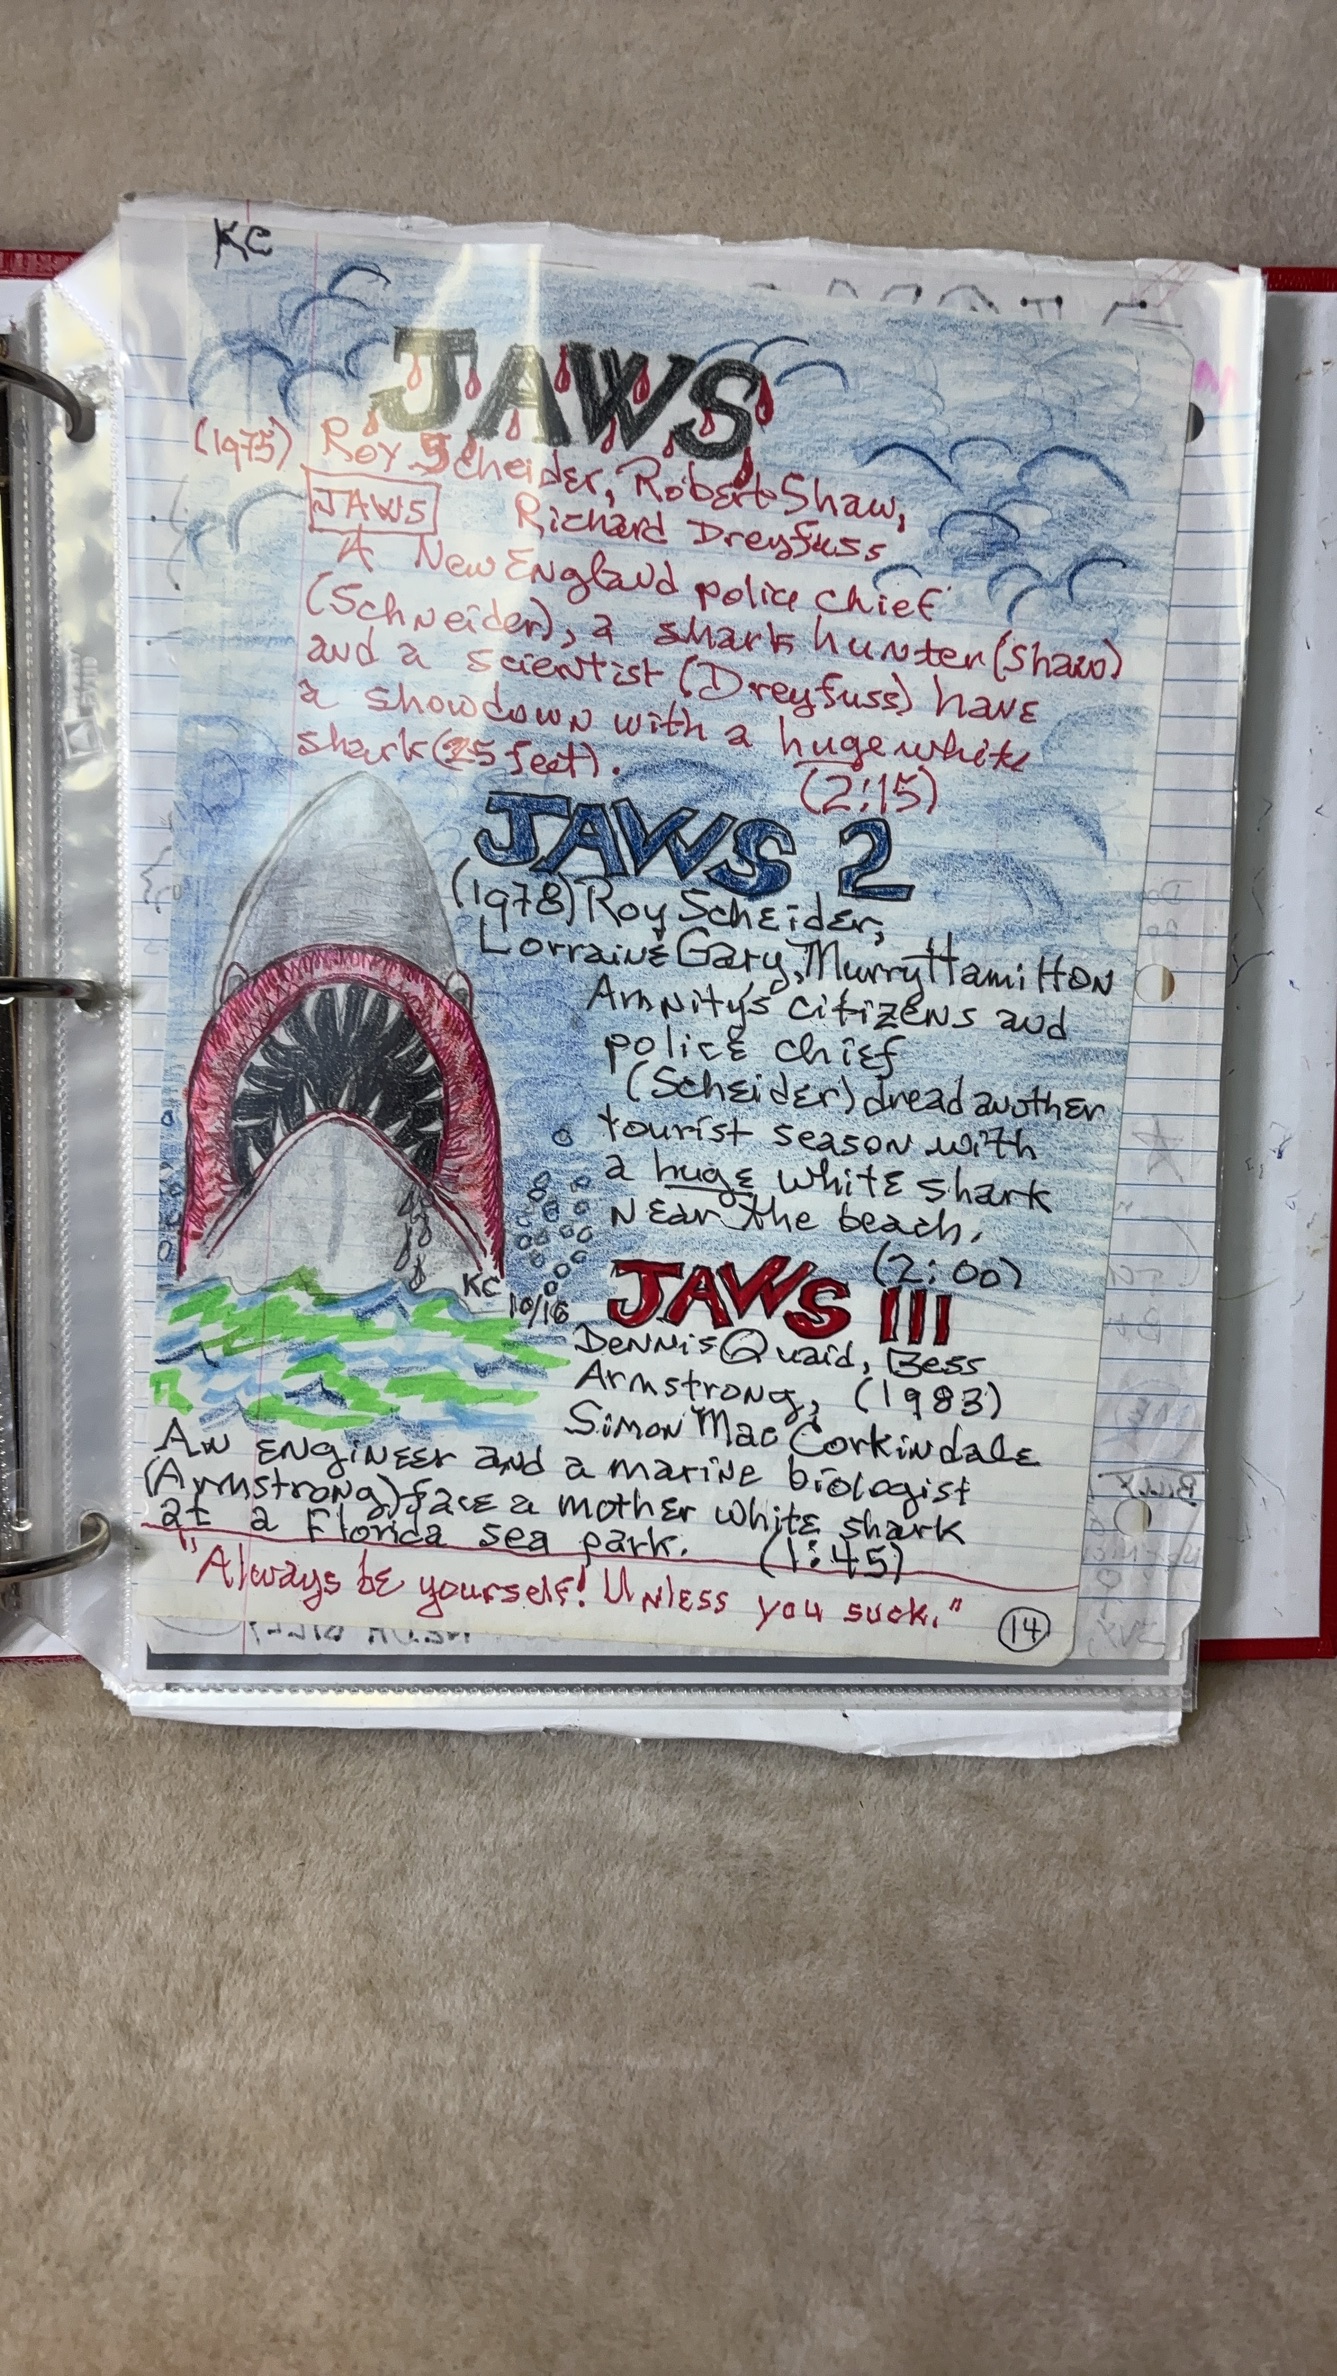 KC
JAWS
(1975) Roy Scheider, Robert Shaw,
JAWS Richard Dreyfuss
A New England police chief
(Schneider), a shark hunter (Shaw)
and a scientist (Dreyfuss) have
a showdown with a huge white
shark (25 feet).
(2:15)
JAWS 2
(1978) Roy Scheider,
Lorraine Gary, Murry Hamilton
Amnity's citizens and
police chief
(Scheider) dread another
tourist season with
a huge white shark
near the beach.
(2:00)
KC
10/16
JAWS III
Dennis Quaid, Bess
Armstrong, (1983)
Simon Mac Corkindale
An engineer and a marine biologist
(Armstrong) face a mother white shark
at a Florida sea park. (1:45)
"Always be yourself! Unless you suck."
14